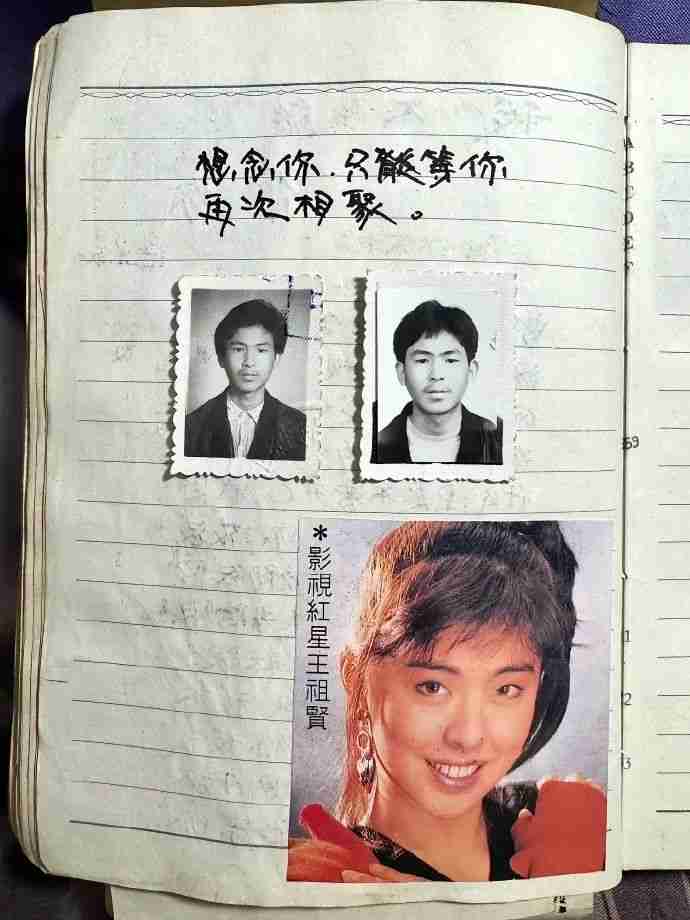 想念你.只能等你
再次相聚。
*影視紅星王祖賢
A
B
C
D
E
F
59
1
2
3